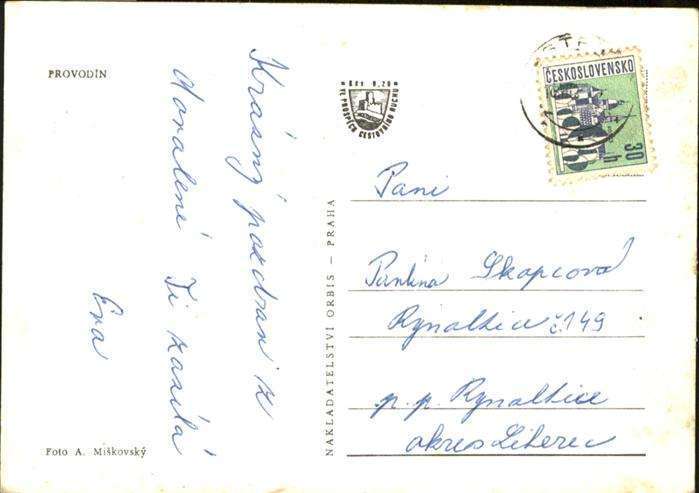 PROVODÍN
Krásný pozdrav z
Ti zasílá
Eva
Foto A. Miškovský
Kčs 0,20
VE PROSPĚCH CESTOVNÍHO RUCHU
NAKLADATELSTVÍ ORBIS – PRAHA
ČESKOSLOVENSKO
30 h
Paní
Pavlína Skopcová
Rynoltice č 149
p. p. Rynoltice
okres Liberec